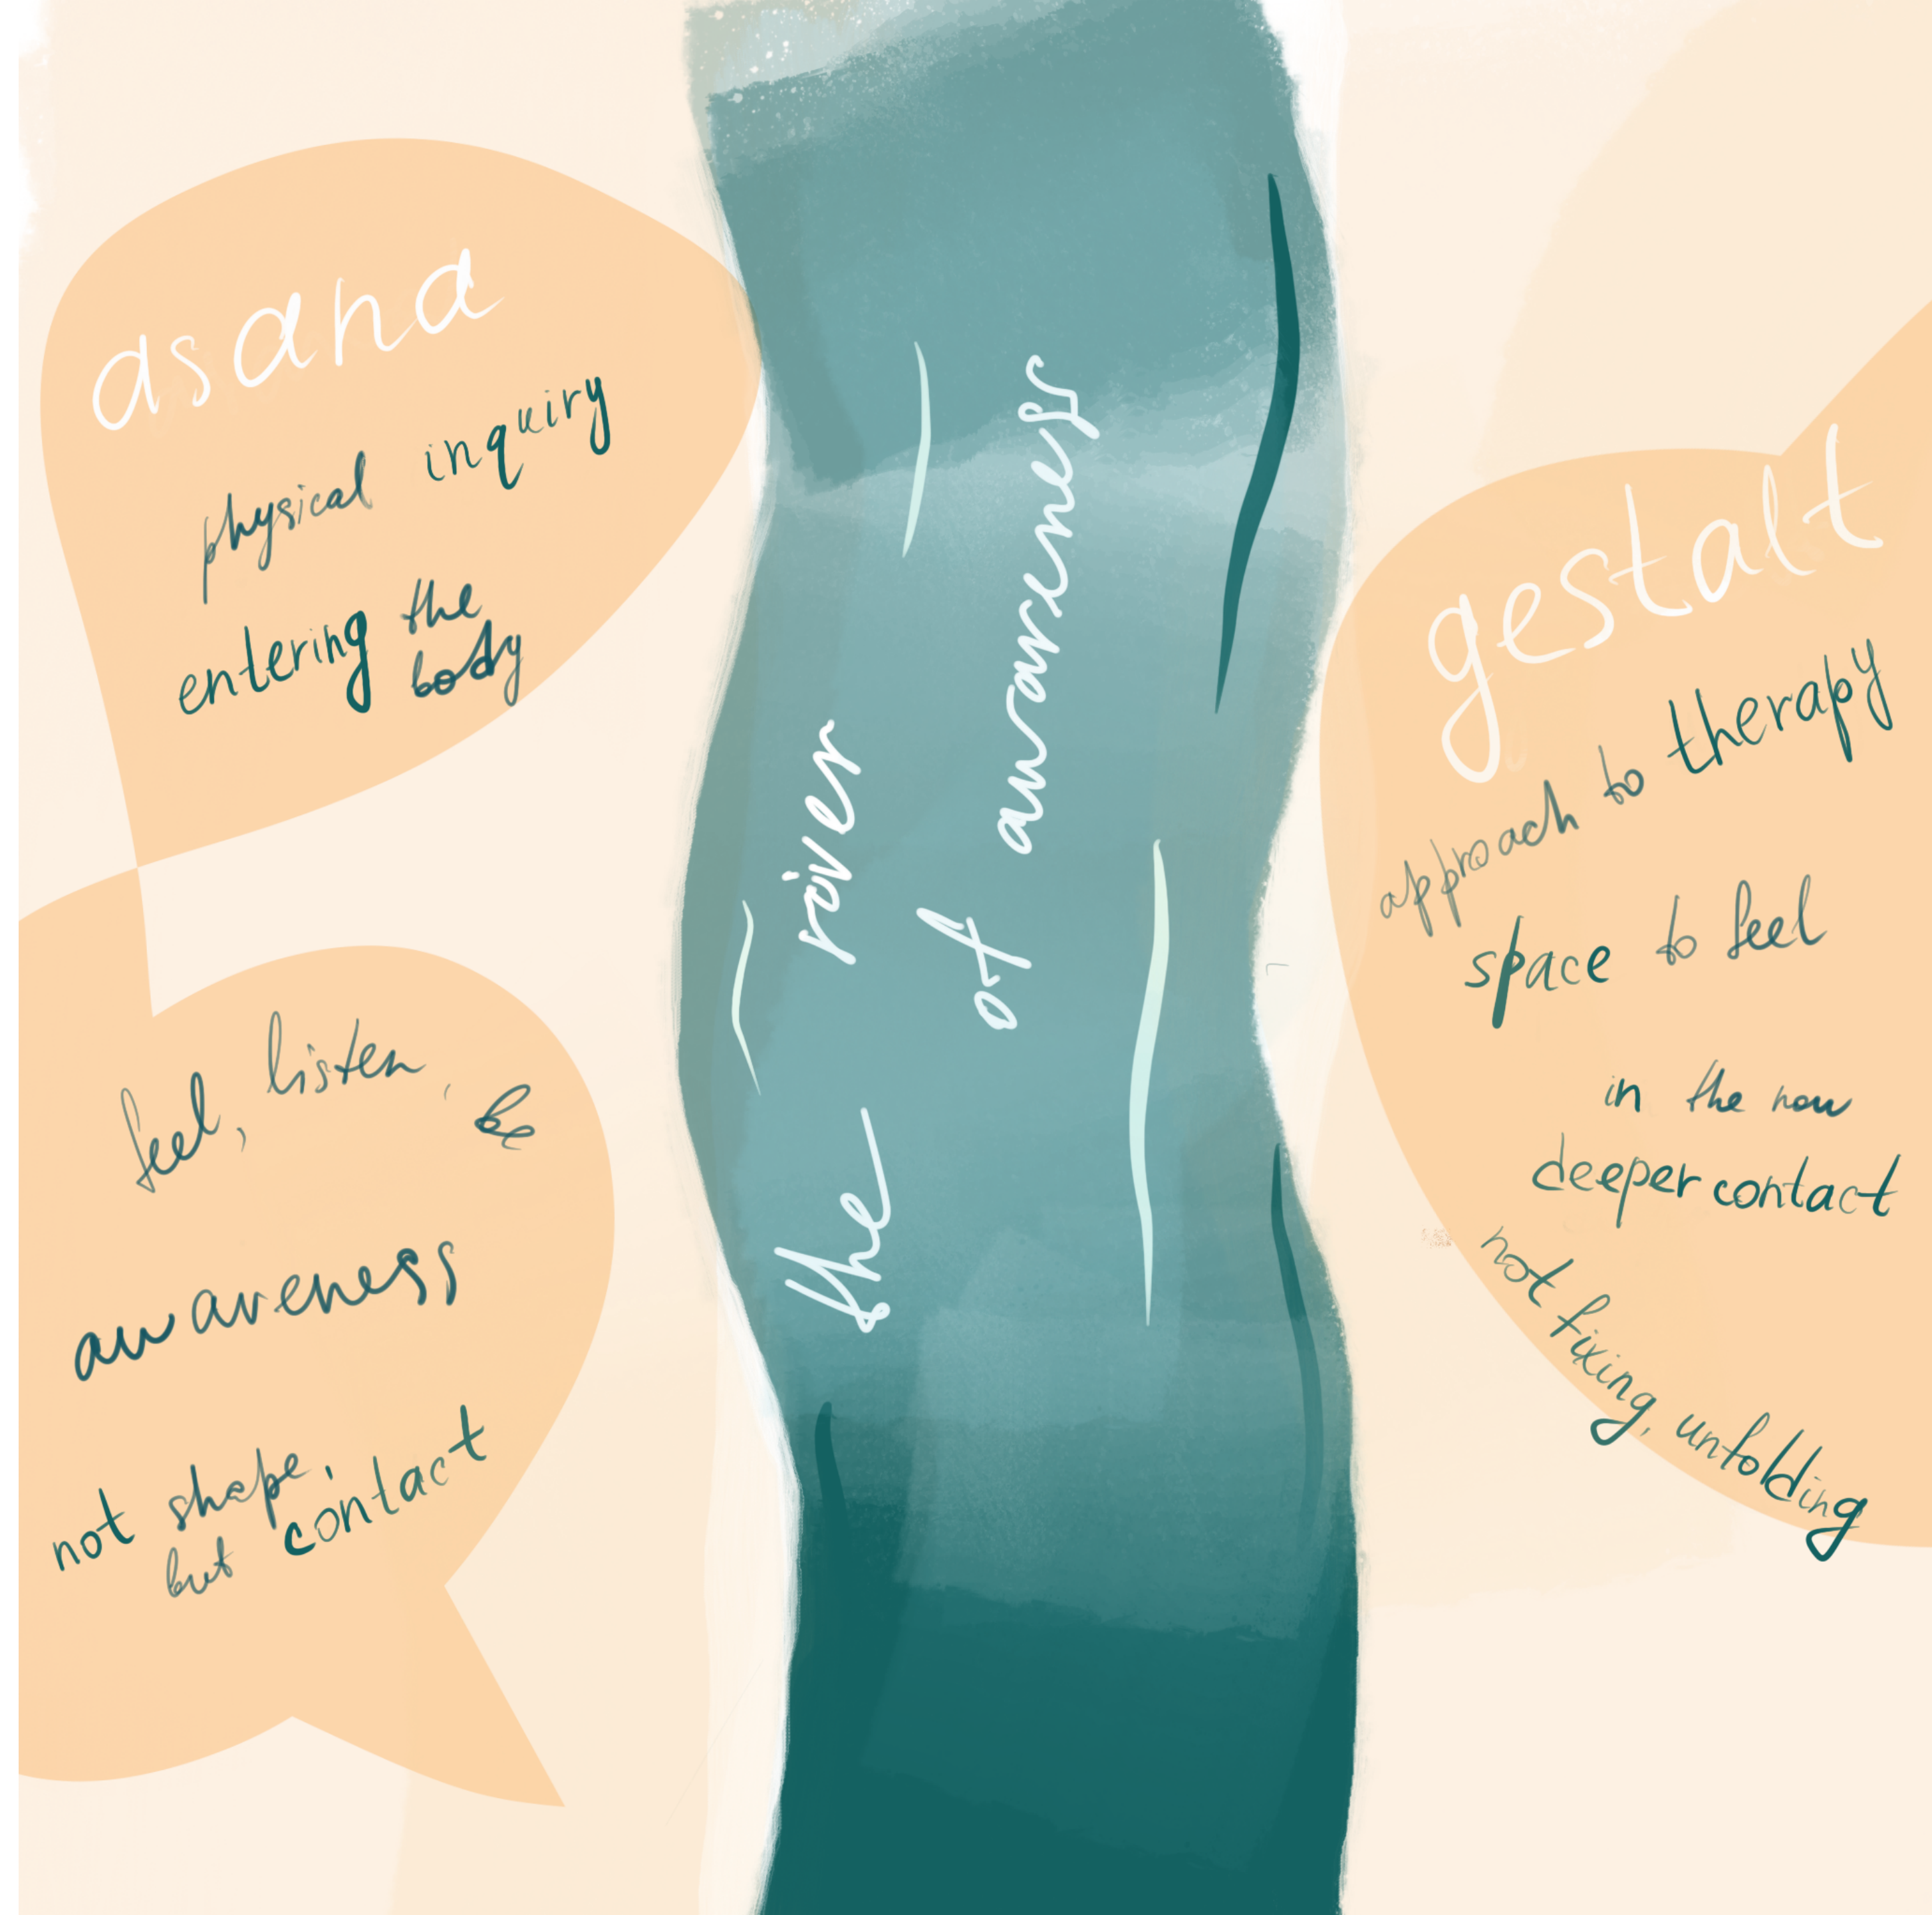 asana
physical inquiry
entering the
body
feel, listen, be
awareness
not shape,
but contact
the river
of awareness
gestalt
approach to therapy
space to feel
in the now
deeper contact
not fixing, unfolding